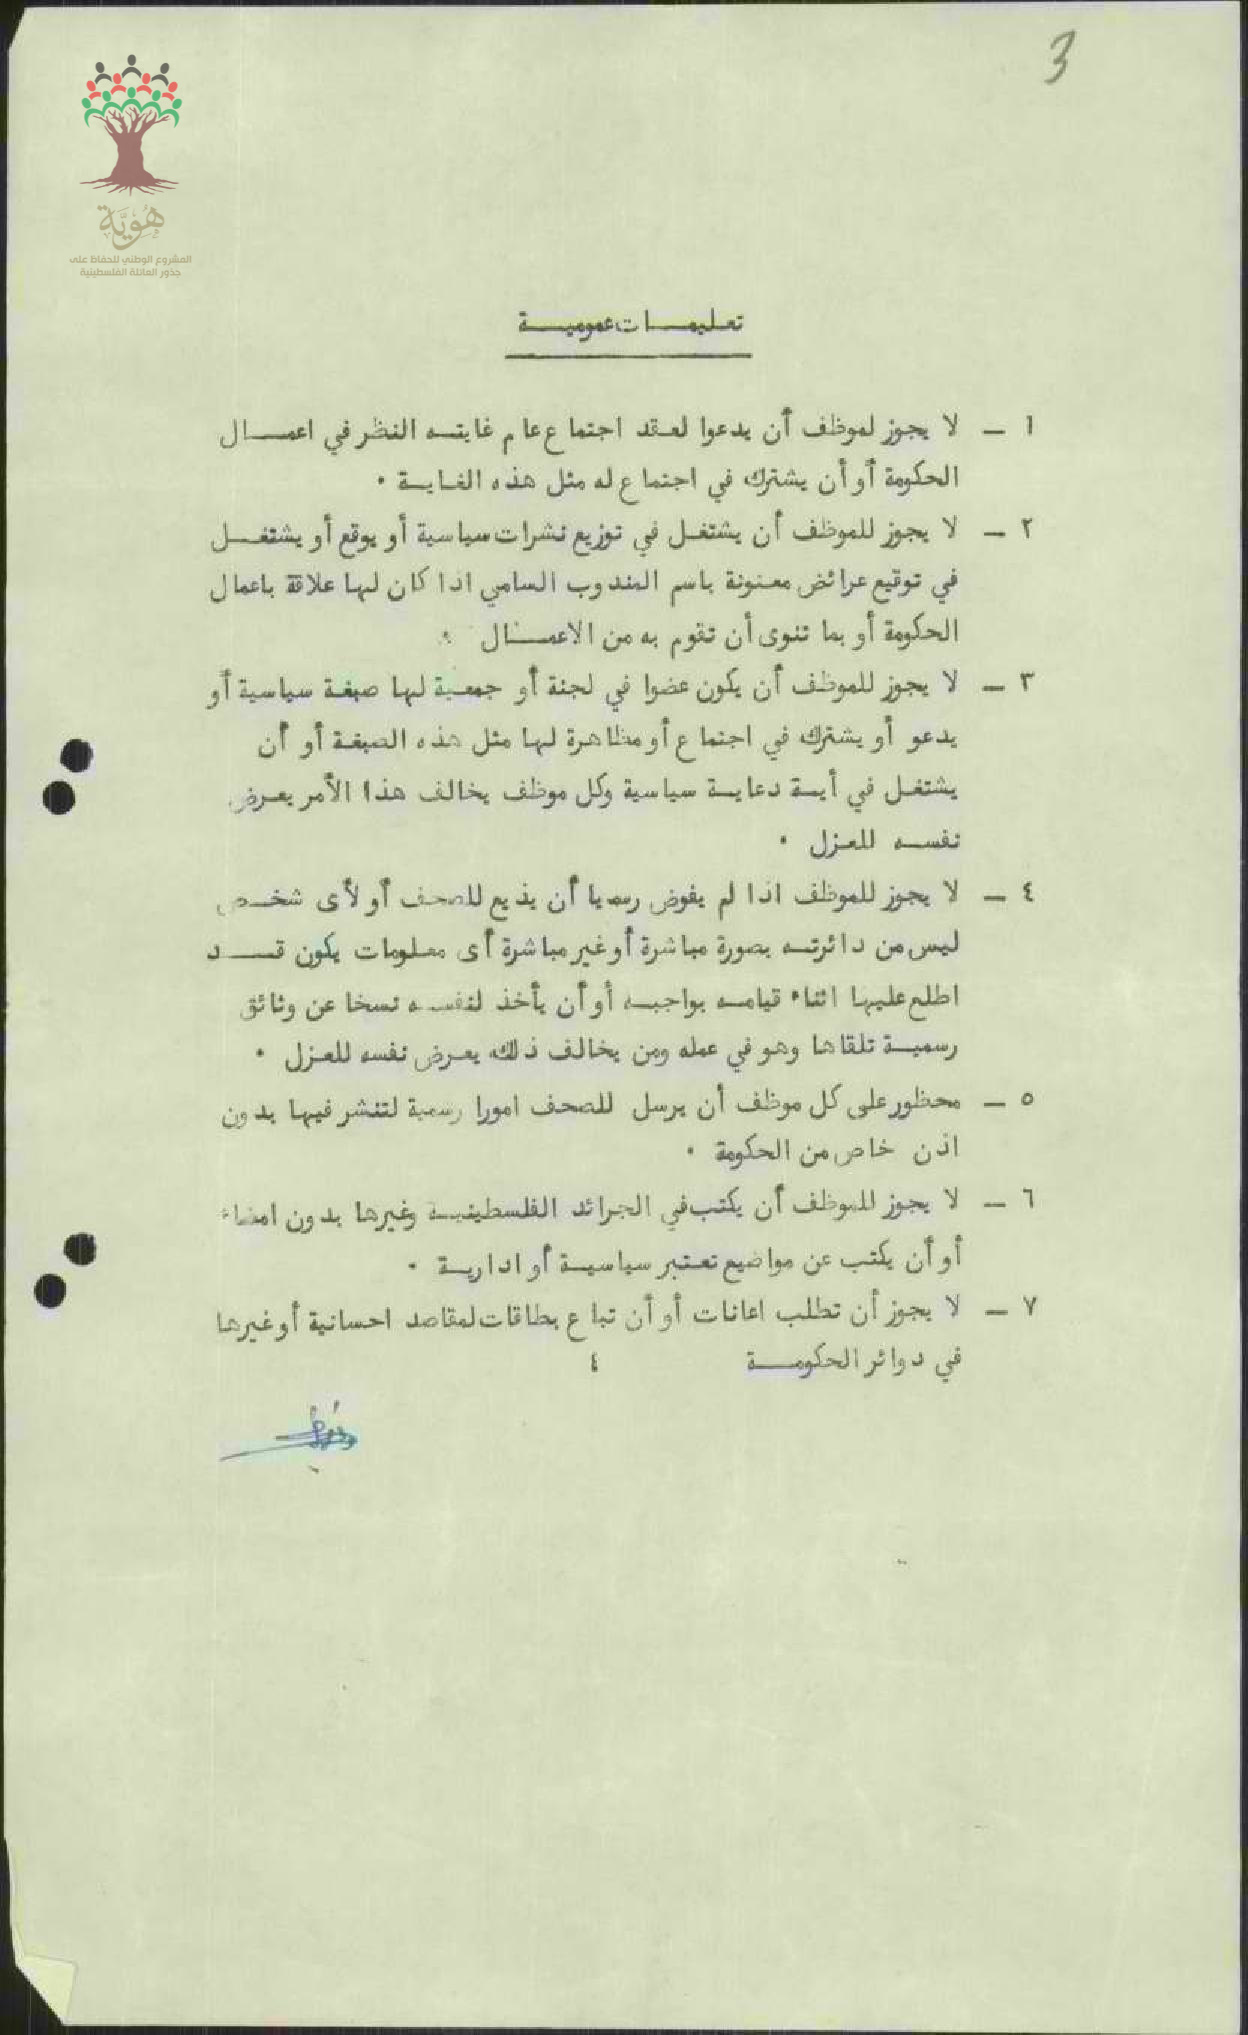 3
هُوِيَّة
المشروع الوطني للحفاظ على
جذور العائلة الفلسطينية
تعليمات عمومية
١ - لا يجوز لموظف أن يدعوا لعقد اجتماع عام غايته النظر في اعمال
الحكومة أو أن يشترك في اجتماع له مثل هذه الغاية .
٢ - لا يجوز للموظف أن يشتغل في توزيع نشرات سياسية أو يوقع أو يشتغل
في توقيع عرائض معنونة باسم المندوب السامي اذا كان لها علاقة باعمال
الحكومة أو بما تنوى أن تقوم به من الاعمال .
٣ - لا يجوز للموظف أن يكون عضوا في لجنة أو جمعية لها صبغة سياسية أو
يدعو أو يشترك في اجتماع أو مظاهرة لها مثل هذه الصبغة أو أن
يشتغل في أية دعاية سياسية وكل موظف يخالف هذا الأمر يعرض
نفسه للعزل .
٤ - لا يجوز للموظف اذا لم يفوض رسميا أن يذيع للصحف أو لأى شخص
ليس من دائرته بصورة مباشرة أو غير مباشرة أى معلومات يكون قد
اطلع عليها اثناء قيامه بواجبه أو أن يأخذ لنفسه نسخا عن وثائق
رسمية تلقاها وهو في عمله ومن يخالف ذلك يعرض نفسه للعزل .
٥ - محظور على كل موظف أن يرسل للصحف امورا رسمية لتنشر فيها بدون
اذن خاص من الحكومة .
٦ - لا يجوز للموظف أن يكتب في الجرائد الفلسطينية وغيرها بدون امضاء
أو أن يكتب عن مواضيع تعتبر سياسية أو ادارية .
٧ - لا يجوز أن تطلب اعانات أو أن تباع بطاقات لمقاصد احسانية أو غيرها
في دوائر الحكومة ٤